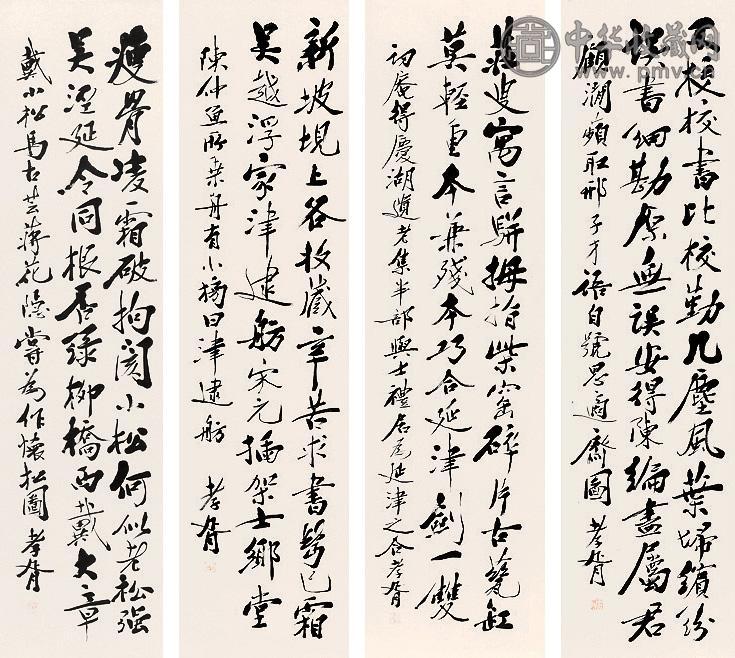 不校校書比校勤几塵風葉埽繽紛
誤書細勘原無誤安得陳編盡屬君
顧澗薲取邢子才語自號思適齋圖 孝胥
蕘叟寓言駢拇指柴窰碎片古甕缸
莫輕重本兼殘本巧合延津劍一雙
初庵得慶湖遺老集半部與士禮居延津之合孝胥
新坡上各收藏辛苦求書鬢已霜
吳越浮家津逮舫宋元插架士鄉堂
陳仲魚所乘舟有小曰津逮舫 孝胥
瘦骨凌霜破拘閡小松何似老松強
吳涇延令同根否綠柳橋西戴大章
戴小松馬古芸蔣花隱嘗為作懷松圖 孝胥
中华收藏网
www.pmv.cn